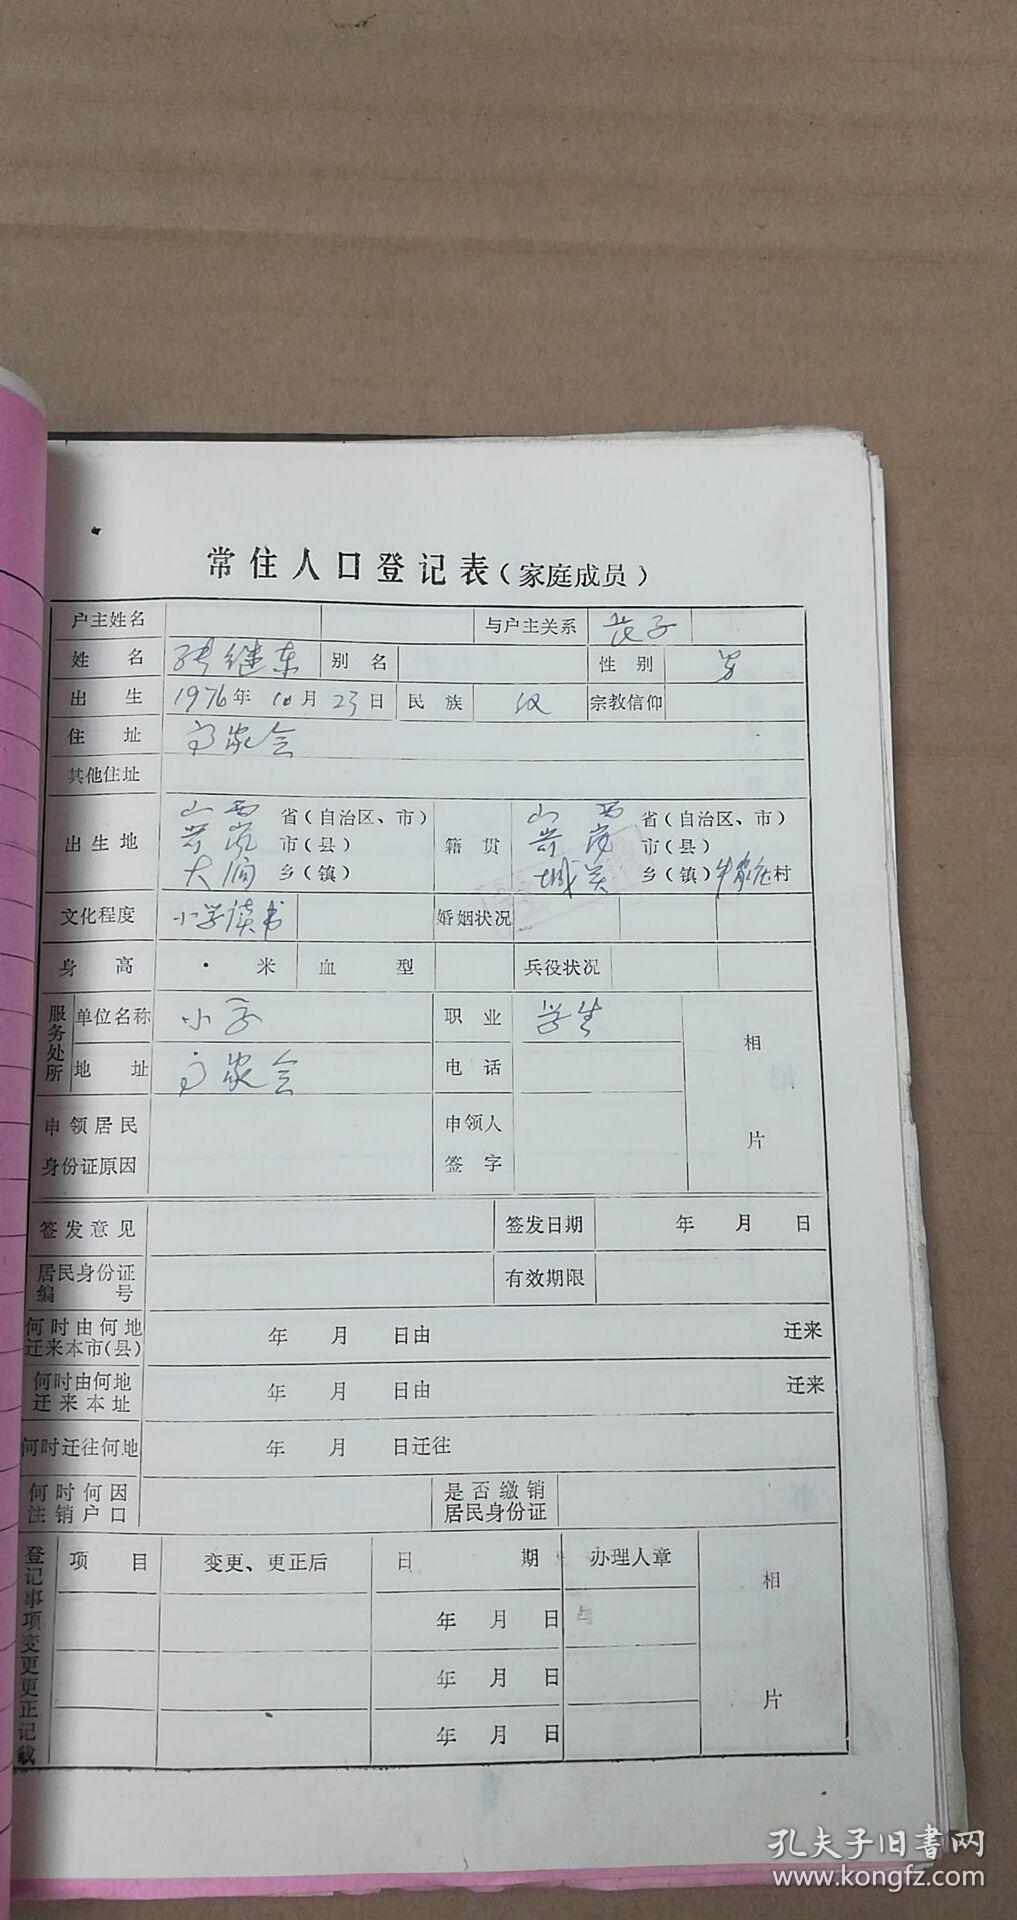 常住人口登记表（家庭成员）
户主姓名 与户主关系 长子
姓名 张继东 别名 性别 男
出生 1976年10月23日 民族 汉 宗教信仰
住址 家会
其他住址
出生地 山西 省（自治区、市） 籍贯 山西 省（自治区、市）
岢岚 市（县） 岢岚 市（县）
大涧 乡（镇） 城关 乡（镇） 村
文化程度 小学读书 婚姻状况
身高 · 米 血型 兵役状况
服务处所 单位名称 小学 职业 学生
地址 家会 电话
相片
申领居民身份证原因 申领人签字
签发意见 签发日期 年 月 日
居民身份证编号 有效期限
何时由何地迁来本市（县） 年 月 日由 迁来
何时由何地迁来本址 年 月 日由 迁来
何时迁往何地 年 月 日迁往
何时何因注销户口 是否缴销居民身份证
登记事项变更更正记载 项目 变更、更正后 日期 办理人章
相片
年 月 日
年 月 日
年 月 日
孔夫子旧书网
www.kongfz.com